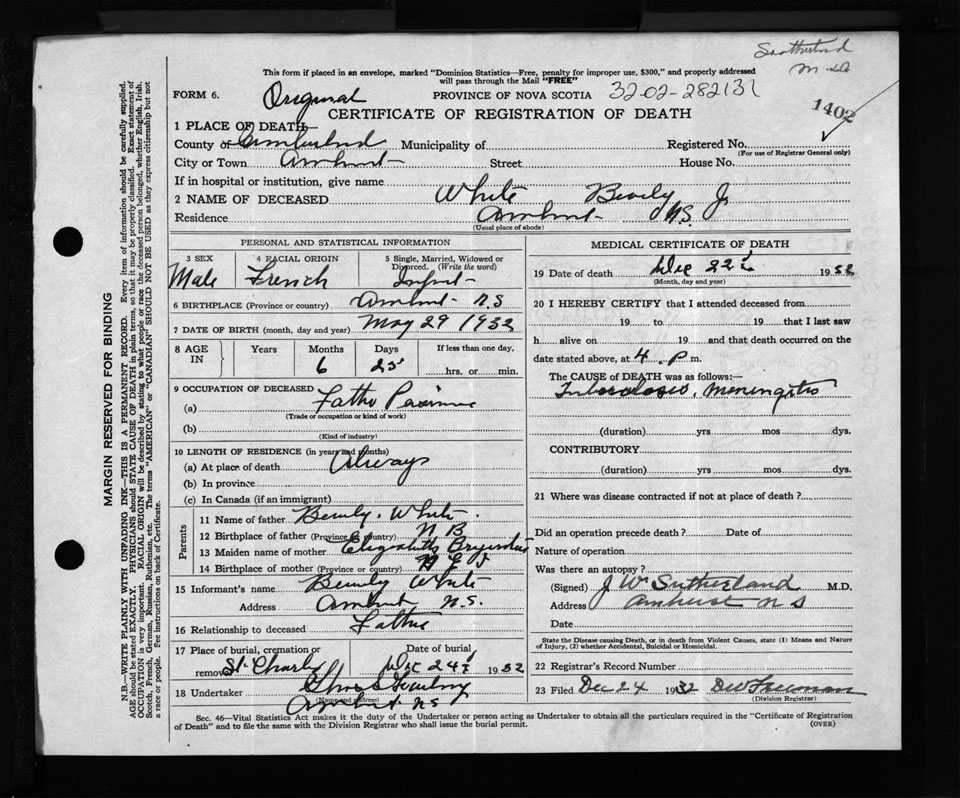 This form if placed in an envelope, marked "Dominion Statistics—Free, penalty for improper use, $300," and properly addressed
will pass through the Mail "FREE"
FORM 6. Original PROVINCE OF NOVA SCOTIA 3202-282131
CERTIFICATE OF REGISTRATION OF DEATH 1402
1 PLACE OF DEATH—
County of Cumberland Municipality of Registered No.
(For use of Registrar General only)
City or Town Amherst Street House No.
If in hospital or institution, give name
2 NAME OF DECEASED White Beverly Jr
Residence Amherst N.S.
(Usual place of abode)
PERSONAL AND STATISTICAL INFORMATION
3 SEX Male
4 RACIAL ORIGIN French
5 Single, Married, Widowed or
Divorced. (Write the word)
Infant
6 BIRTHPLACE (Province or country) Amherst N.S
7 DATE OF BIRTH (month, day and year) May 29 1932
8 AGE IN Years Months Days If less than one day,
6 25 hrs. or min.
9 OCCUPATION OF DECEASED
(a) Father
(Trade or occupation or kind of work)
(b)
(Kind of industry)
10 LENGTH OF RESIDENCE (in years and months)
(a) At place of death Always
(b) In province
(c) In Canada (if an immigrant)
Parents
11 Name of father Beverly White
12 Birthplace of father (Province or country) N B
13 Maiden name of mother Elizabeth
14 Birthplace of mother (Province or country)
15 Informant's name Beverly White
Address Amherst N.S.
16 Relationship to deceased Father
17 Place of burial, cremation or Date of burial
removal St. Charles Dec 24 1932
18 Undertaker
(Name and address)
Amherst NS
MEDICAL CERTIFICATE OF DEATH
19 Date of death Dec 22 1932
(Month, day and year)
20 I HEREBY CERTIFY that I attended deceased from
19 to 19 that I last saw
h alive on 19 and that death occurred on the
date stated above, at 4 P m.
The CAUSE OF DEATH was as follows:—
Tuberculosis, Meningitis
(duration) yrs mos dys.
CONTRIBUTORY
(duration) yrs mos dys.
21 Where was disease contracted if not at place of death?
Did an operation precede death? Date of
Nature of operation
Was there an autopsy?
(Signed) J W Sutherland M.D.
Address Amherst N S
Date
State the Disease causing Death, or in death from Violent Causes, state (1) Means and Nature
of Injury, (2) whether Accidental, Suicidal or Homicidal.
22 Registrar's Record Number
23 Filed Dec 24 1932
(Division Registrar)
Sec. 46—Vital Statistics Act makes it the duty of the Undertaker or person acting as Undertaker to obtain all the particulars required in the "Certificate of Registration
of Death" and to file the same with the Division Registrar who shall issue the burial permit. (OVER)
MARGIN RESERVED FOR BINDING
N.B.—WRITE PLAINLY WITH UNFADING INK—THIS IS A PERMANENT RECORD. Every item of information should be carefully supplied.
AGE should be stated EXACTLY. PHYSICIANS should STATE CAUSE OF DEATH in plain terms, so that it may be properly classified. Exact statement of
OCCUPATION is very important. RACIAL ORIGIN will be described by stating to what people or race the deceased person belonged, whether English, Irish,
Scotch, French, German, Russian, Ruthenian, etc. The terms "AMERICAN" or "CANADIAN" SHOULD NOT BE USED as they express citizenship but not
a race or people. See instructions on back of Certificate.